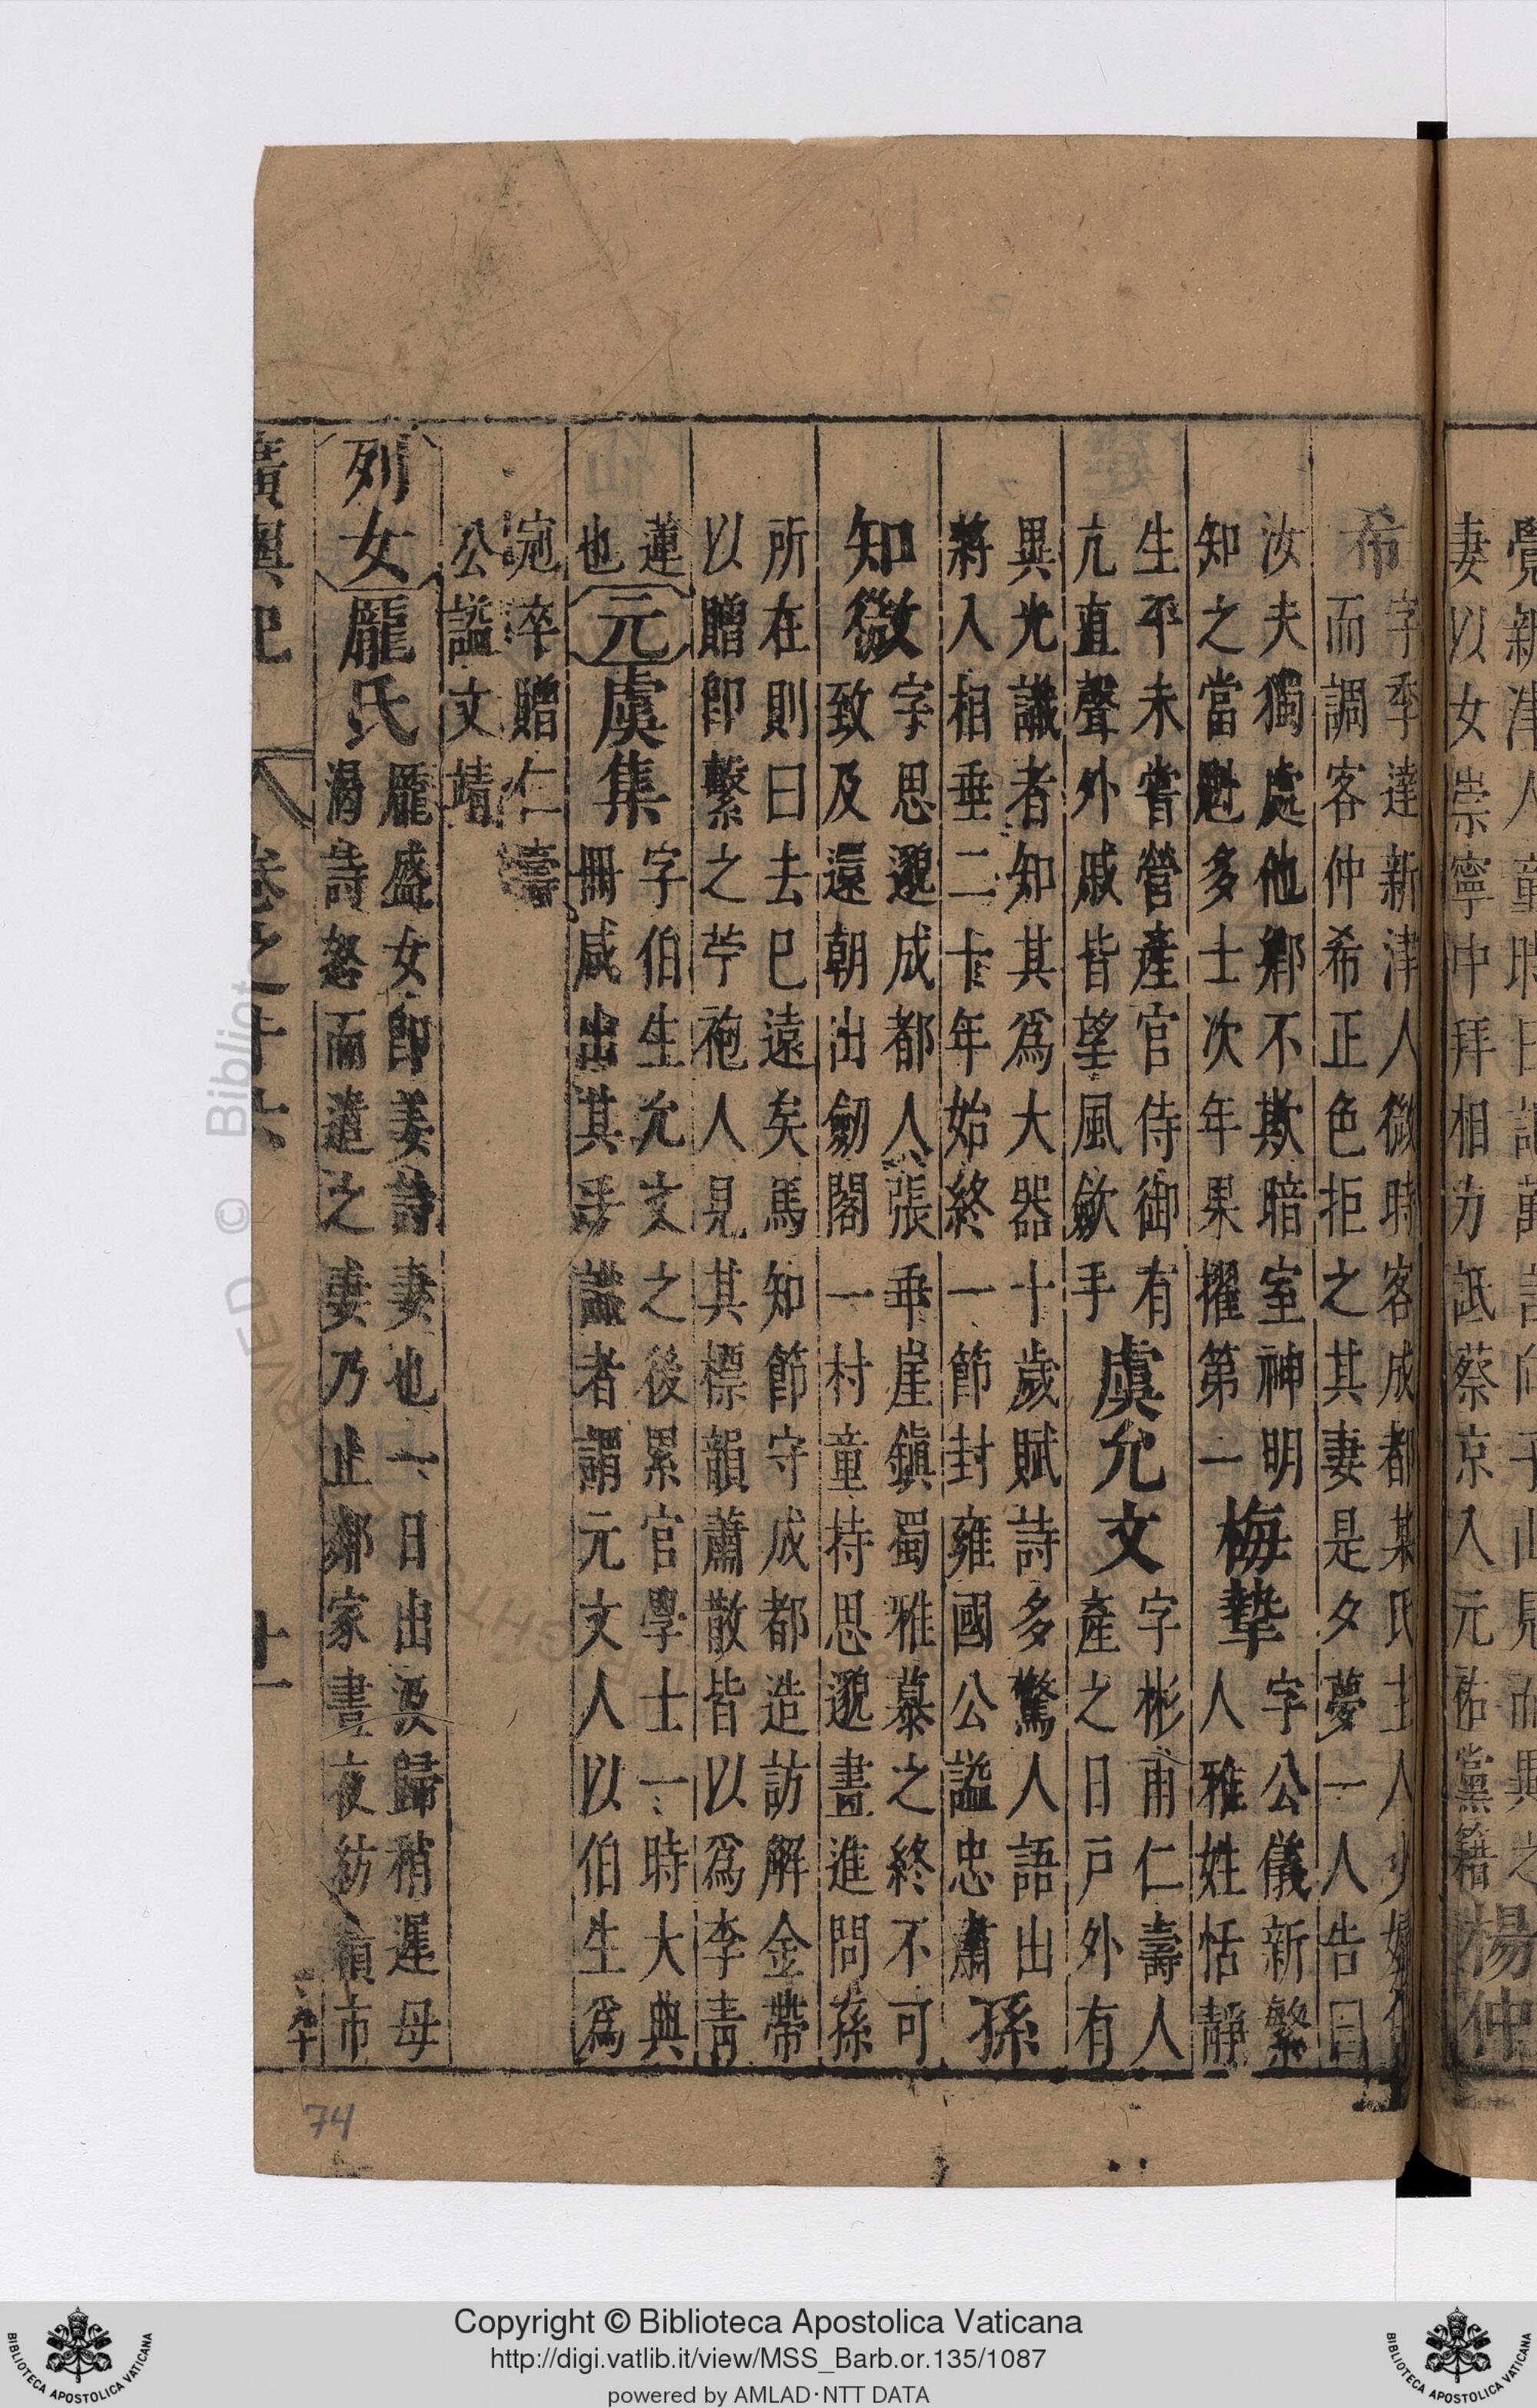 妻以女崇寧中拜相力詆蔡京入元祐黨籍楊仲
希字季達新津人微時客成都某氏主人少婦
而調客仲希正色拒之其妻是夕夢一人告曰
汝夫獨處他鄉不欺暗室神明
知之當魁多士次年果擢第一梅摯字公儀新繁
人雅姓恬靜
生平未嘗營產官侍御有
亢直聲外戚皆望風歛手虞允文字彬甫仁壽人
產之日戶外有
異光識者知其爲大器十歲賦詩多驚人語出
將入相垂二十年始終一節封雍國公謚忠肅孫
知微字思邈成都人張乖崖鎮蜀雅慕之終不可
致及還朝出劒閣一村童持思邈畫進問孫
所在則曰去已遠矣馬知節守成都造訪解金帶
以贈即繫之苧袍人見其標韻蕭散皆以爲李青
蓮
也元虞集字伯生允文之後累官學士一時大典
冊咸出其手論者謂元文人以伯生爲
冠卒贈仁壽
公謚文靖
列女龐氏龐盛女即姜詩妻也一日出汲歸稍遲母
渴詩怒而遣之妻乃止鄰家晝夜紡績市
廣輿記 卷之十六 十一
74
Copyright © Biblioteca Apostolica Vaticana
http://digi.vatlib.it/view/MSS_Barb.or.135/1087
powered by AMLAD·NTT DATA
BIBLIOTECA APOSTOLICA VATICANA
BIBLIOTECA APOSTOLICA VATICANA